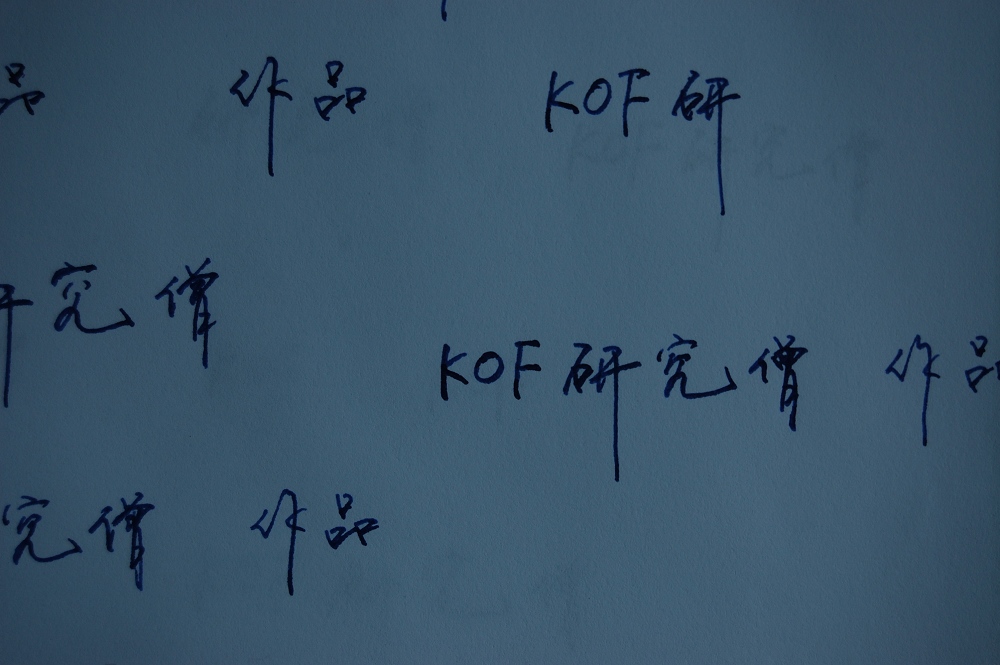 品 作品 KOF研
研究僧
KOF研究僧 作品
究僧 作品